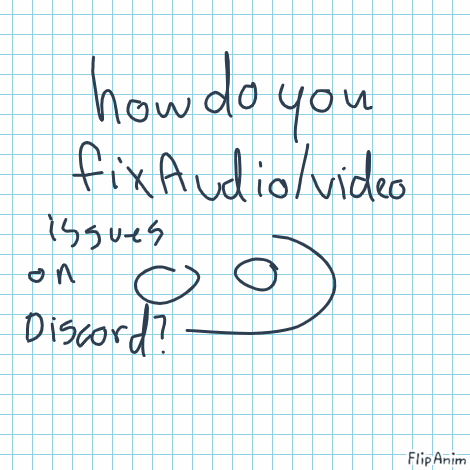 how do you
fix Audio/video
issues
on
Discord?
FlipAnim